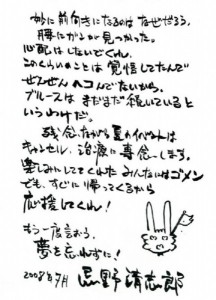 妙に前向きになるのはなぜだろう。
腰にガンが見つかった。
心配はしないでくれ。
このくらいのことは覚悟してたんで
ぜんぜんヘコんでないから。
ブルースはまだまだ続いているという
わけだ。
残念ながら夏のイベントは
キャンセル、治療に専念します。
楽しみにしてくれたみんなにはゴメン
でも、すぐに帰ってくるから
応援してくれ！
もう一度言おう。
夢を忘れずに！
2008年7月 忌野清志郎